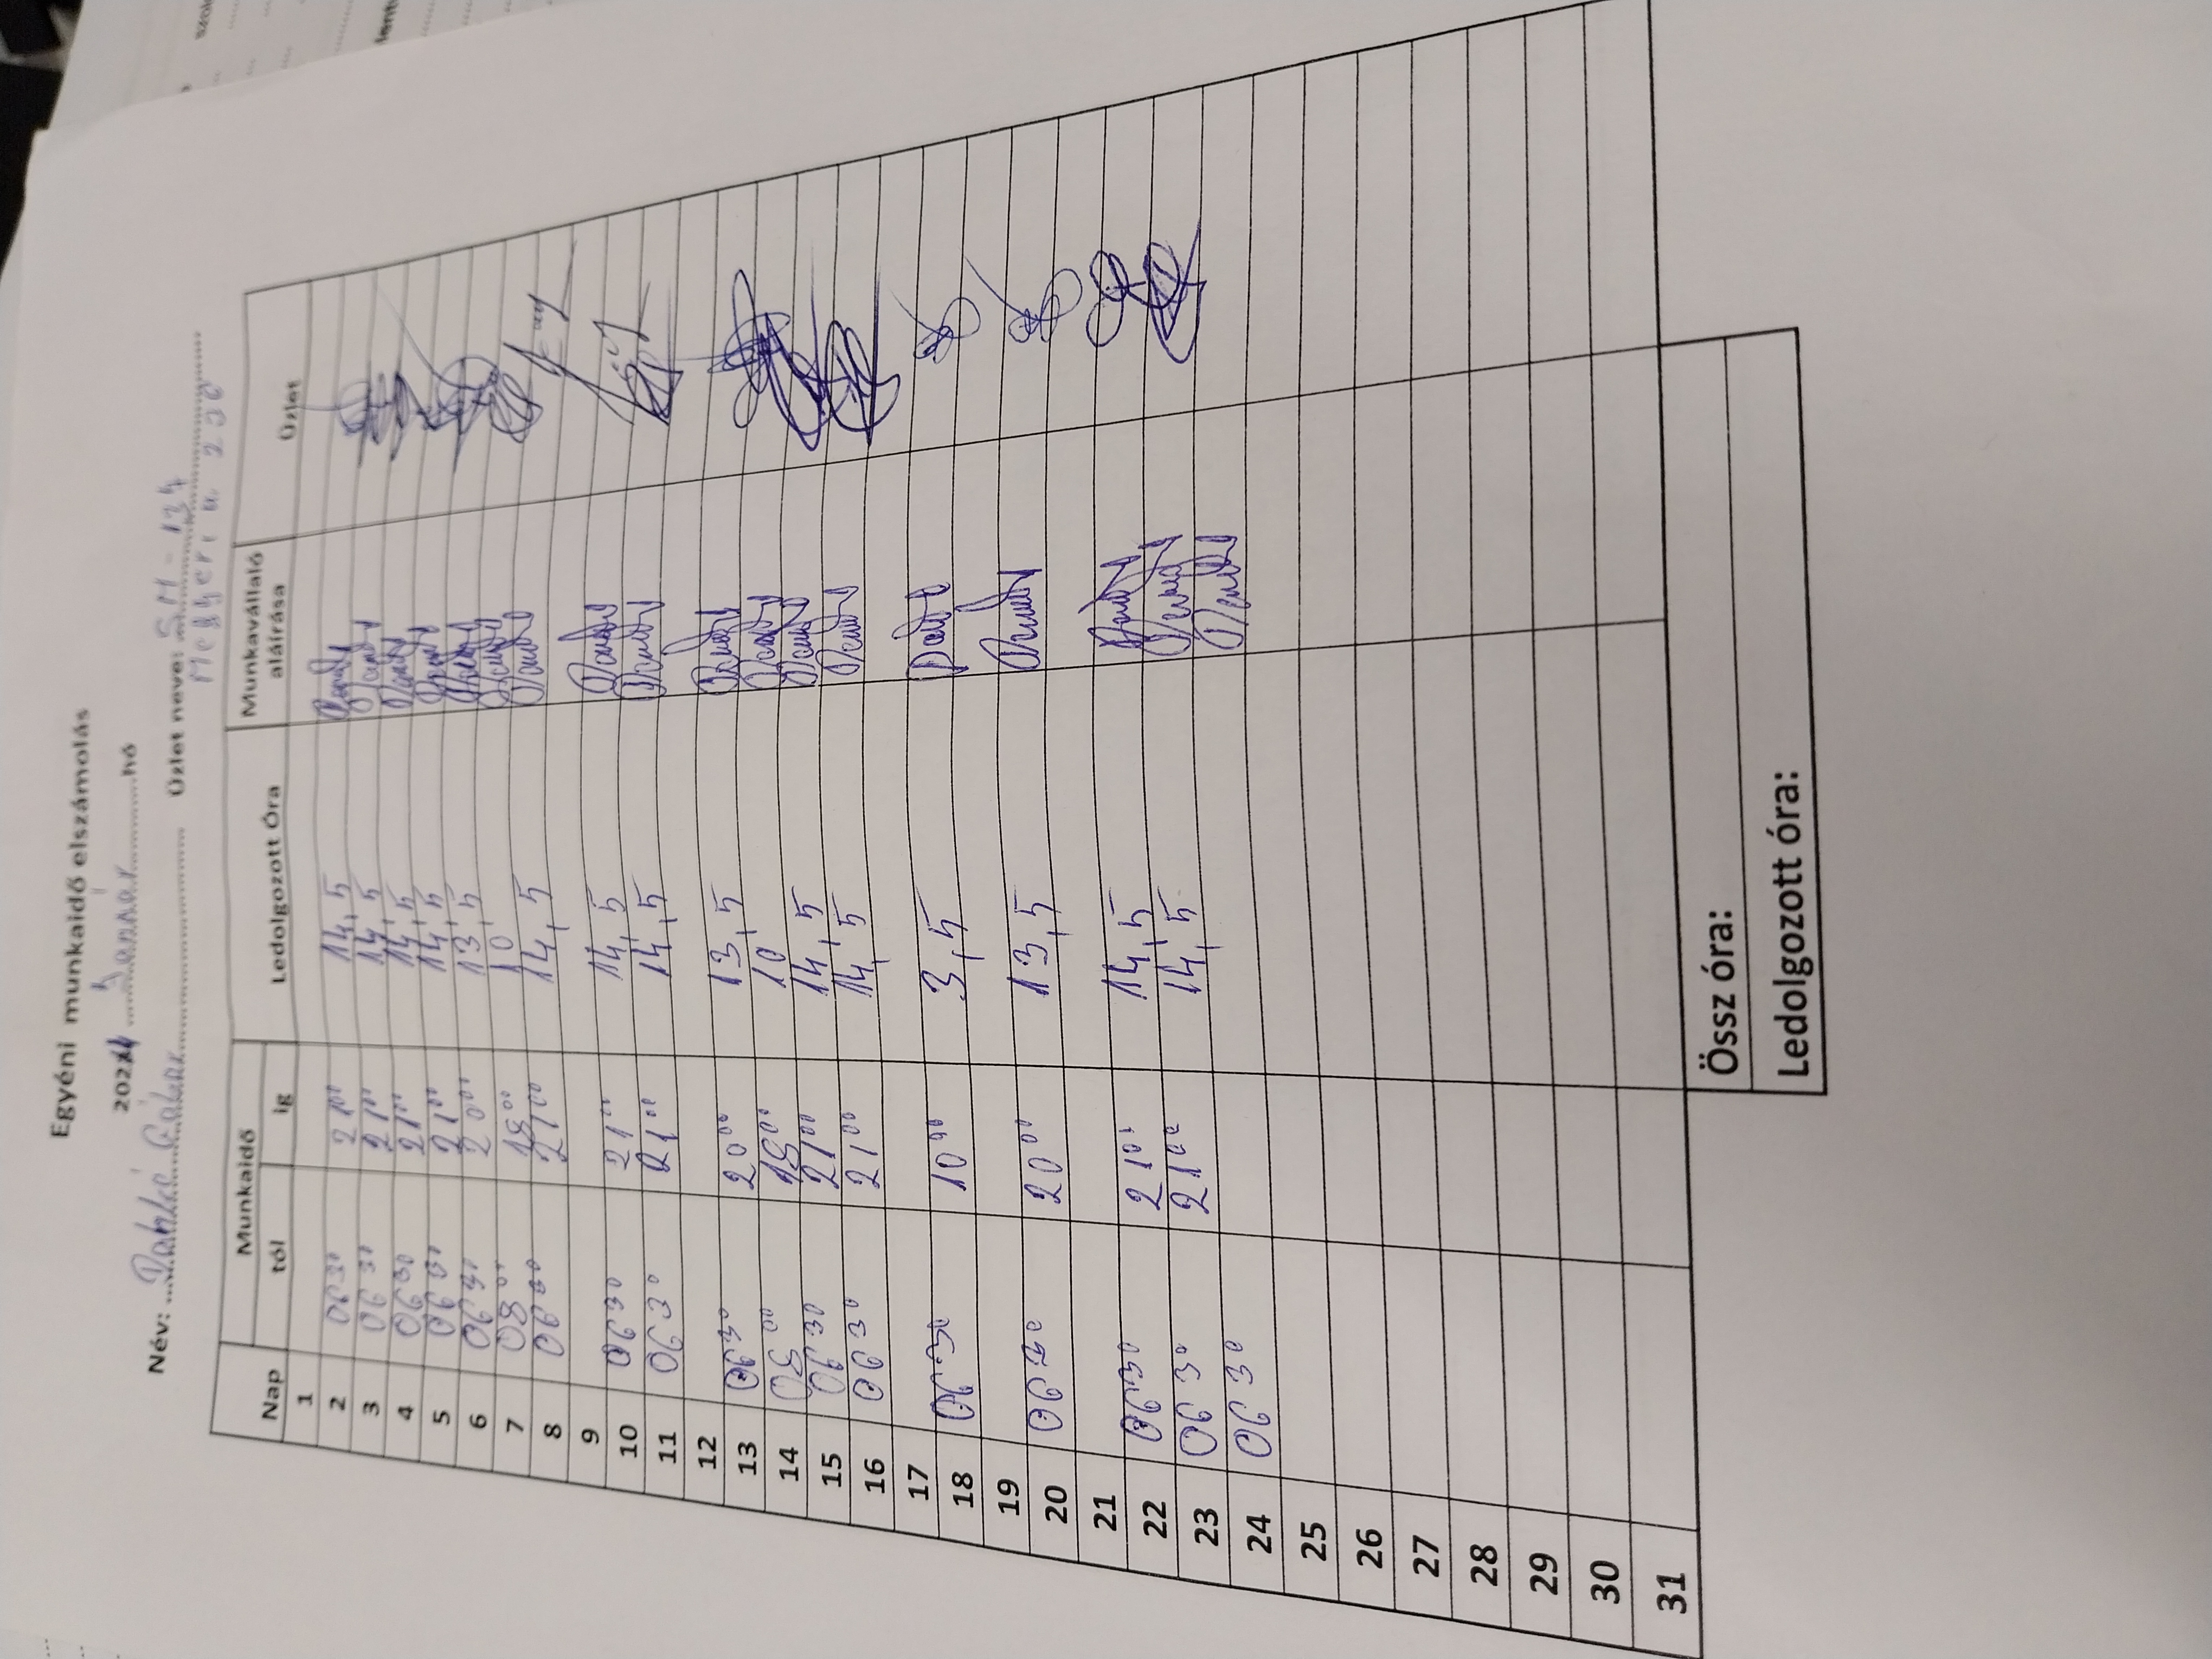 Egyéni munkaidő elszámolás
2024 Január hó
Név: Üzlet neve: SM - 134
Megyeri u 230
Nap Munkaidő Ledolgozott Óra Munkavállaló aláírása Üzlet
tól ig
1
2 06 30 21 00 14,5
3 06 30 21 00 14,5
4 06 30 21 00 14,5
5 06 30 21 00 14,5
6 06 30 20 00 13,5
7 08 00 18 00 10
8 06 30 21 00 14,5
9
10 06 30 21 00 14,5
11 06 30 21 00 14,5
12
13 06 30 20 00 13,5
14 08 00 18 00 10
15 06 30 21 00 14,5
16 06 30 21 00 14,5
17
18 06 30 10 00 3,5
19
20 06 30 20 00 13,5
21
22 06 30 21 00 14,5
23 06 30 21 00 14,5
24 06 30
25
26
27
28
29
30
31
Össz óra:
Ledolgozott óra: